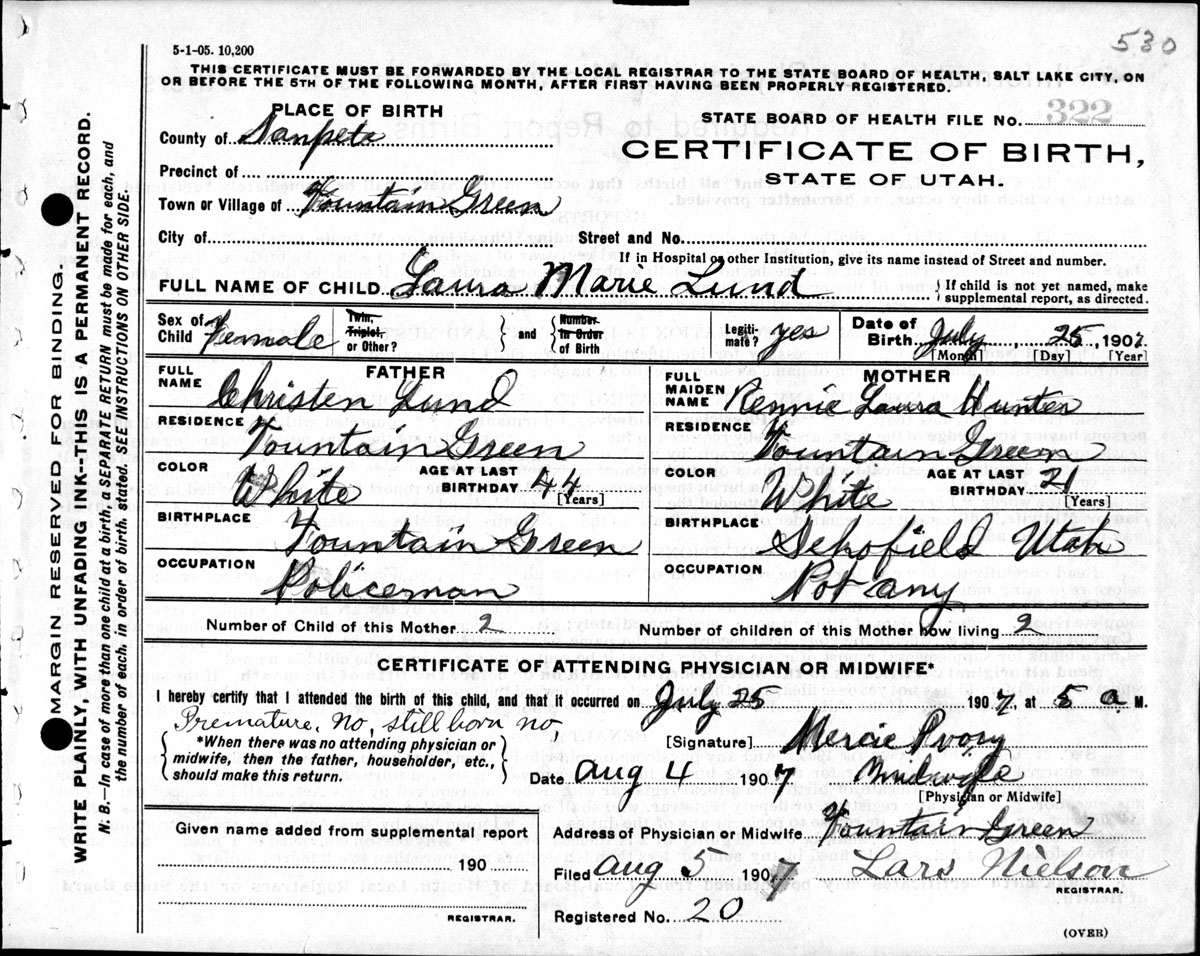 530
5-1-05. 10,200
THIS CERTIFICATE MUST BE FORWARDED BY THE LOCAL REGISTRAR TO THE STATE BOARD OF HEALTH, SALT LAKE CITY, ON
OR BEFORE THE 5TH OF THE FOLLOWING MONTH, AFTER FIRST HAVING BEEN PROPERLY REGISTERED.
PLACE OF BIRTH
STATE BOARD OF HEALTH FILE No. 322
County of Sanpete
CERTIFICATE OF BIRTH,
STATE OF UTAH.
Precinct of
Town or Village of Fountain Green
City of Street and No.
If in Hospital or other Institution, give its name instead of Street and number.
FULL NAME OF CHILD Laura Marie Lund { If child is not yet named, make
supplemental report, as directed.
Sex of Child Female
Twin, Triplet, or Other? } and { Number in Order of Birth
Legiti- mate? yes
Date of Birth July, 25, 1907
[Month] [Day] [Year]
FATHER
FULL NAME Christen Lund
RESIDENCE Fountain Green
COLOR White AGE AT LAST BIRTHDAY 44 [Years]
BIRTHPLACE Fountain Green
OCCUPATION Policeman
MOTHER
FULL MAIDEN NAME Rennie Laura Hunter
RESIDENCE Fountain Green
COLOR White AGE AT LAST BIRTHDAY 21 [Years]
BIRTHPLACE Schofield Utah
OCCUPATION Not any
Number of Child of this Mother 2 Number of children of this Mother now living 2
CERTIFICATE OF ATTENDING PHYSICIAN OR MIDWIFE*
I hereby certify that I attended the birth of this child, and that it occurred on July 25 1907, at 5 a M.
Premature, no, still born no,
{ *When there was no attending physician or
midwife, then the father, householder, etc.,
should make this return. }
[Signature] Mercie Ivory
Date Aug 4 1907 Midwife
[Physician or Midwife]
Given name added from supplemental report
190
REGISTRAR.
Address of Physician or Midwife Fountain Green
Filed Aug 5 1907 Lars Nielson
REGISTRAR.
Registered No. 20
(OVER)
MARGIN RESERVED FOR BINDING.
WRITE PLAINLY, WITH UNFADING INK--THIS IS A PERMANENT RECORD.
N. B.--In case of more than one child at a birth, a SEPARATE RETURN must be made for each, and
the number of each, in order of birth, stated. SEE INSTRUCTIONS ON OTHER SIDE.